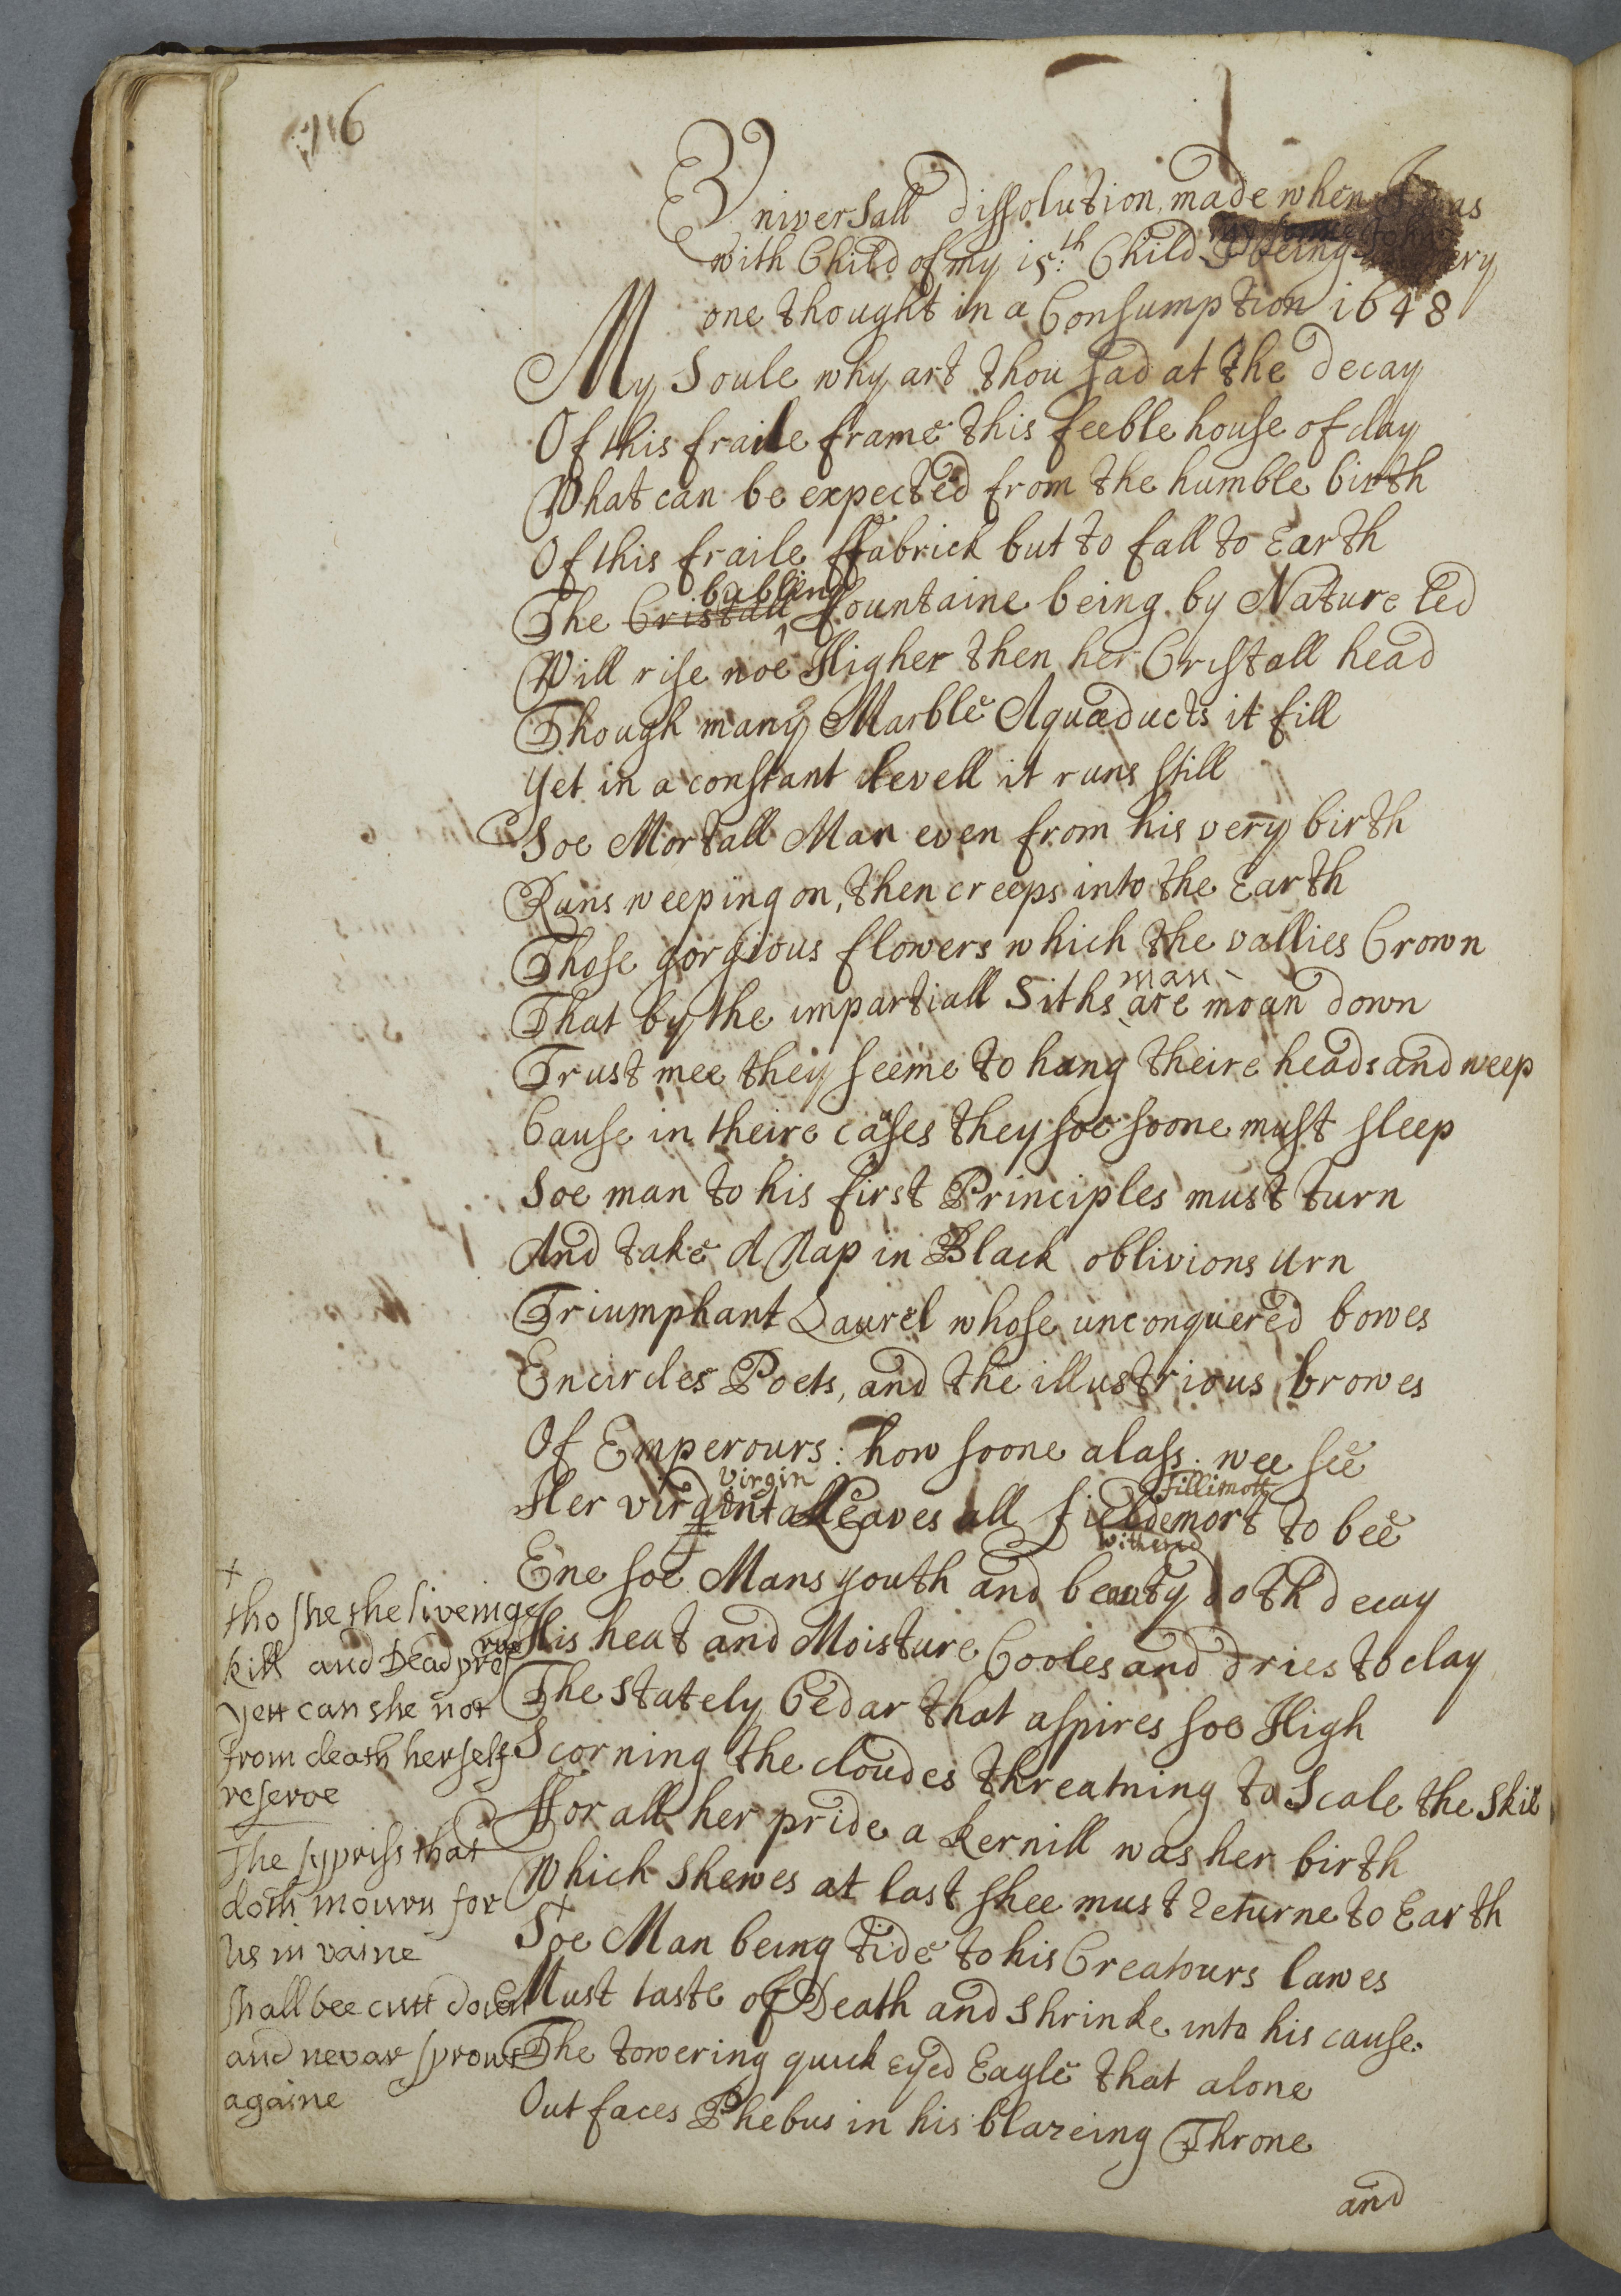 116
Universall dissolution, made when I was
with Child of my 15:th Child my sonne John
I being every
one thought in a Consumption 1648
My Soule why art thou sad at the decay
Of this fraile frame this feeble house of clay
What can be expected from the humble birth
Of this fraile ffabrick but to fall to Earth
bubling
The Cristall ^ fountaine being by Nature led
Will rise noe Higher then her Cristall head
Though many Marble Aquæducts it fill
Yet in a constant levell it runs still
Soe Mortall Man even from his very birth
Runs weeping on, then creeps into the Earth
Those gorgious flowers which the vallies Crown
man
That by the impartiall Siths are moan down
Trust mee they seeme to hang theire heads and weep
Cause in theire cases they soe soone must sleep
Soe man to his first Principles must turn
And take A Nap in Black oblivions urn
Triumphant Laurel whose unconquered bowes
Encircles Poets, and the illustrious browes
Of Emperours: how soone alass. wee see
virgin Fillimott
Her virgin Leaves all to bee
withered
Ene soe Mans youth and beauty doth decay
His heat and Moisture Cooles and dries to clay
The stately Cedar that aspires soe High
Scorning the cloudes threatning to Scale the Skie
ffor all her pride a kernill was her birth
Which shewes at last shee must Returne to Earth
Soe Man being tide to his Creatours lawes
Must taste of Death and shrinke into his cause.
The towering quick eyed Eagle that alone
Out faces Phebus in his blazeing Throne
and
x
tho she the liveinge
kill and Dead
yett can she not
from death herself
reserve
The sypriss that
doth mourn for
us in vaine
shall bee cutt down
and nevar sprout
againe